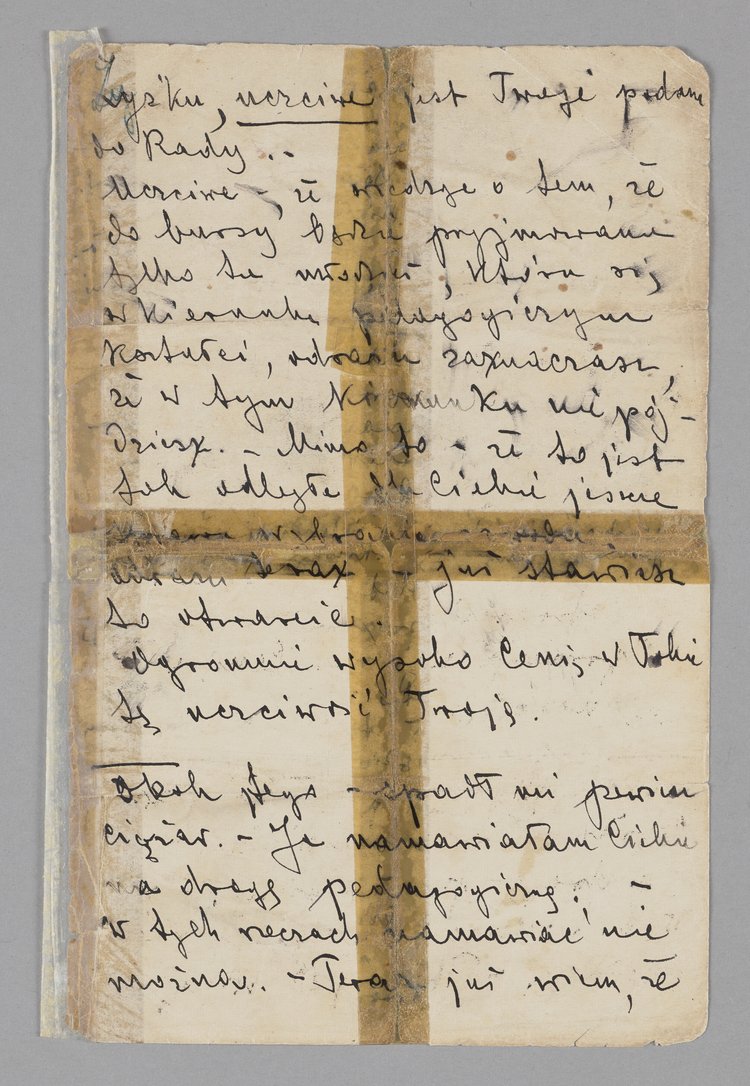 Zyśku, uczciwe jest Twoje podanie
do Rady..
Uczciwe –, że wiedząc o tem, że
do bursy będzie przyjmowana
tylko ta młodzież, która się
w kierunku pedagogicznym
kształci, odrazu zaznaczasz,
że w tym kierunku nie pój-
dziesz. – Mimo to – że to jest
tak odległe dla Ciebie jeszcze
zawodu
teraz – już stawiasz
to otwarcie.
Ogromnie wysoko cenię w Tobie
tę uczciwość Twoję.
Obok tego – spadł mi pewien
ciężar. – Ja namawiałam Ciebie
na drogę pedagogiczną. –
W tych rzeczach namawiać nie
można. – Teraz już wiem, że